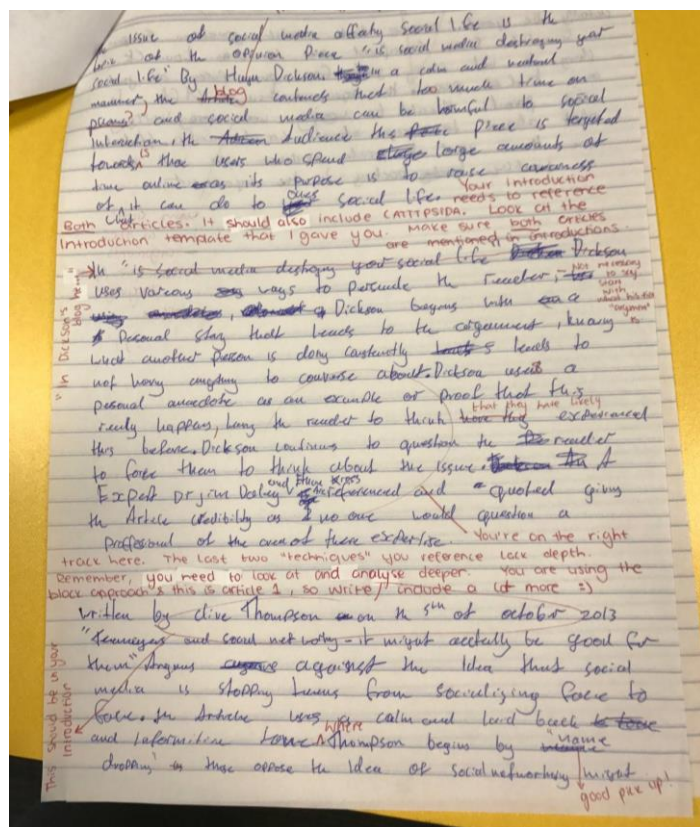 The issue of social media affecting social life is the
of the opinion piece "is social media destroying your
social life" By Hugh Dickson in a calm and neutral
manner, the blog contends that too much time on
phones and social media can be harmful to social
Interaction, the Audience this piece is targeted
towards is those users who spend large amounts of
time online as its purpose is to raise awareness
of what it can do to ones social life.
Your introduction needs to reference
Both articles. It should also include CATTPSIDA. Look at the
Introduction template that I gave you. Make sure both articles
are mentioned in introductions.
"In Dickson's blog he..."
In "is social media destroying your social life Dickson
uses various ways to persuade the reader,
Not necessary to say start with what his first "argument" is
Dickson begins with a
Pesonal story that leads to the argument, knowing
what another person is doing constantly leads to
not having anything to converse about. Dickson uses a
pesonal anecdote as an example or proof that this
really happens, having the reader to think that they have likely experienced
this before. Dickson continues to question the reader
to force them to think about the issue. A
Expert Dr Jim Daley and Ethan Kross are referenced and quoted giving
the Article credibility as no one would question a
proffesional of the area of there expertise. You're on the right
track here. The last two "techniques" you reference lack depth.
Remember, you need to look at and analyse deeper. You are using the
block approach & this is article 1, so write/include a lot more :)
written by clive Thompson on the 5th of october 2013
"Teenagers and social networking - it might acctully be good for
them" Argues against the Idea that social
media is stopping teens from socialising face to
face. the Article uses a calm and laid back
and informitive tone where Thompson begins by "name
dropping" those oppose the Idea of social networking might
good pick up!
This should be in your introduction